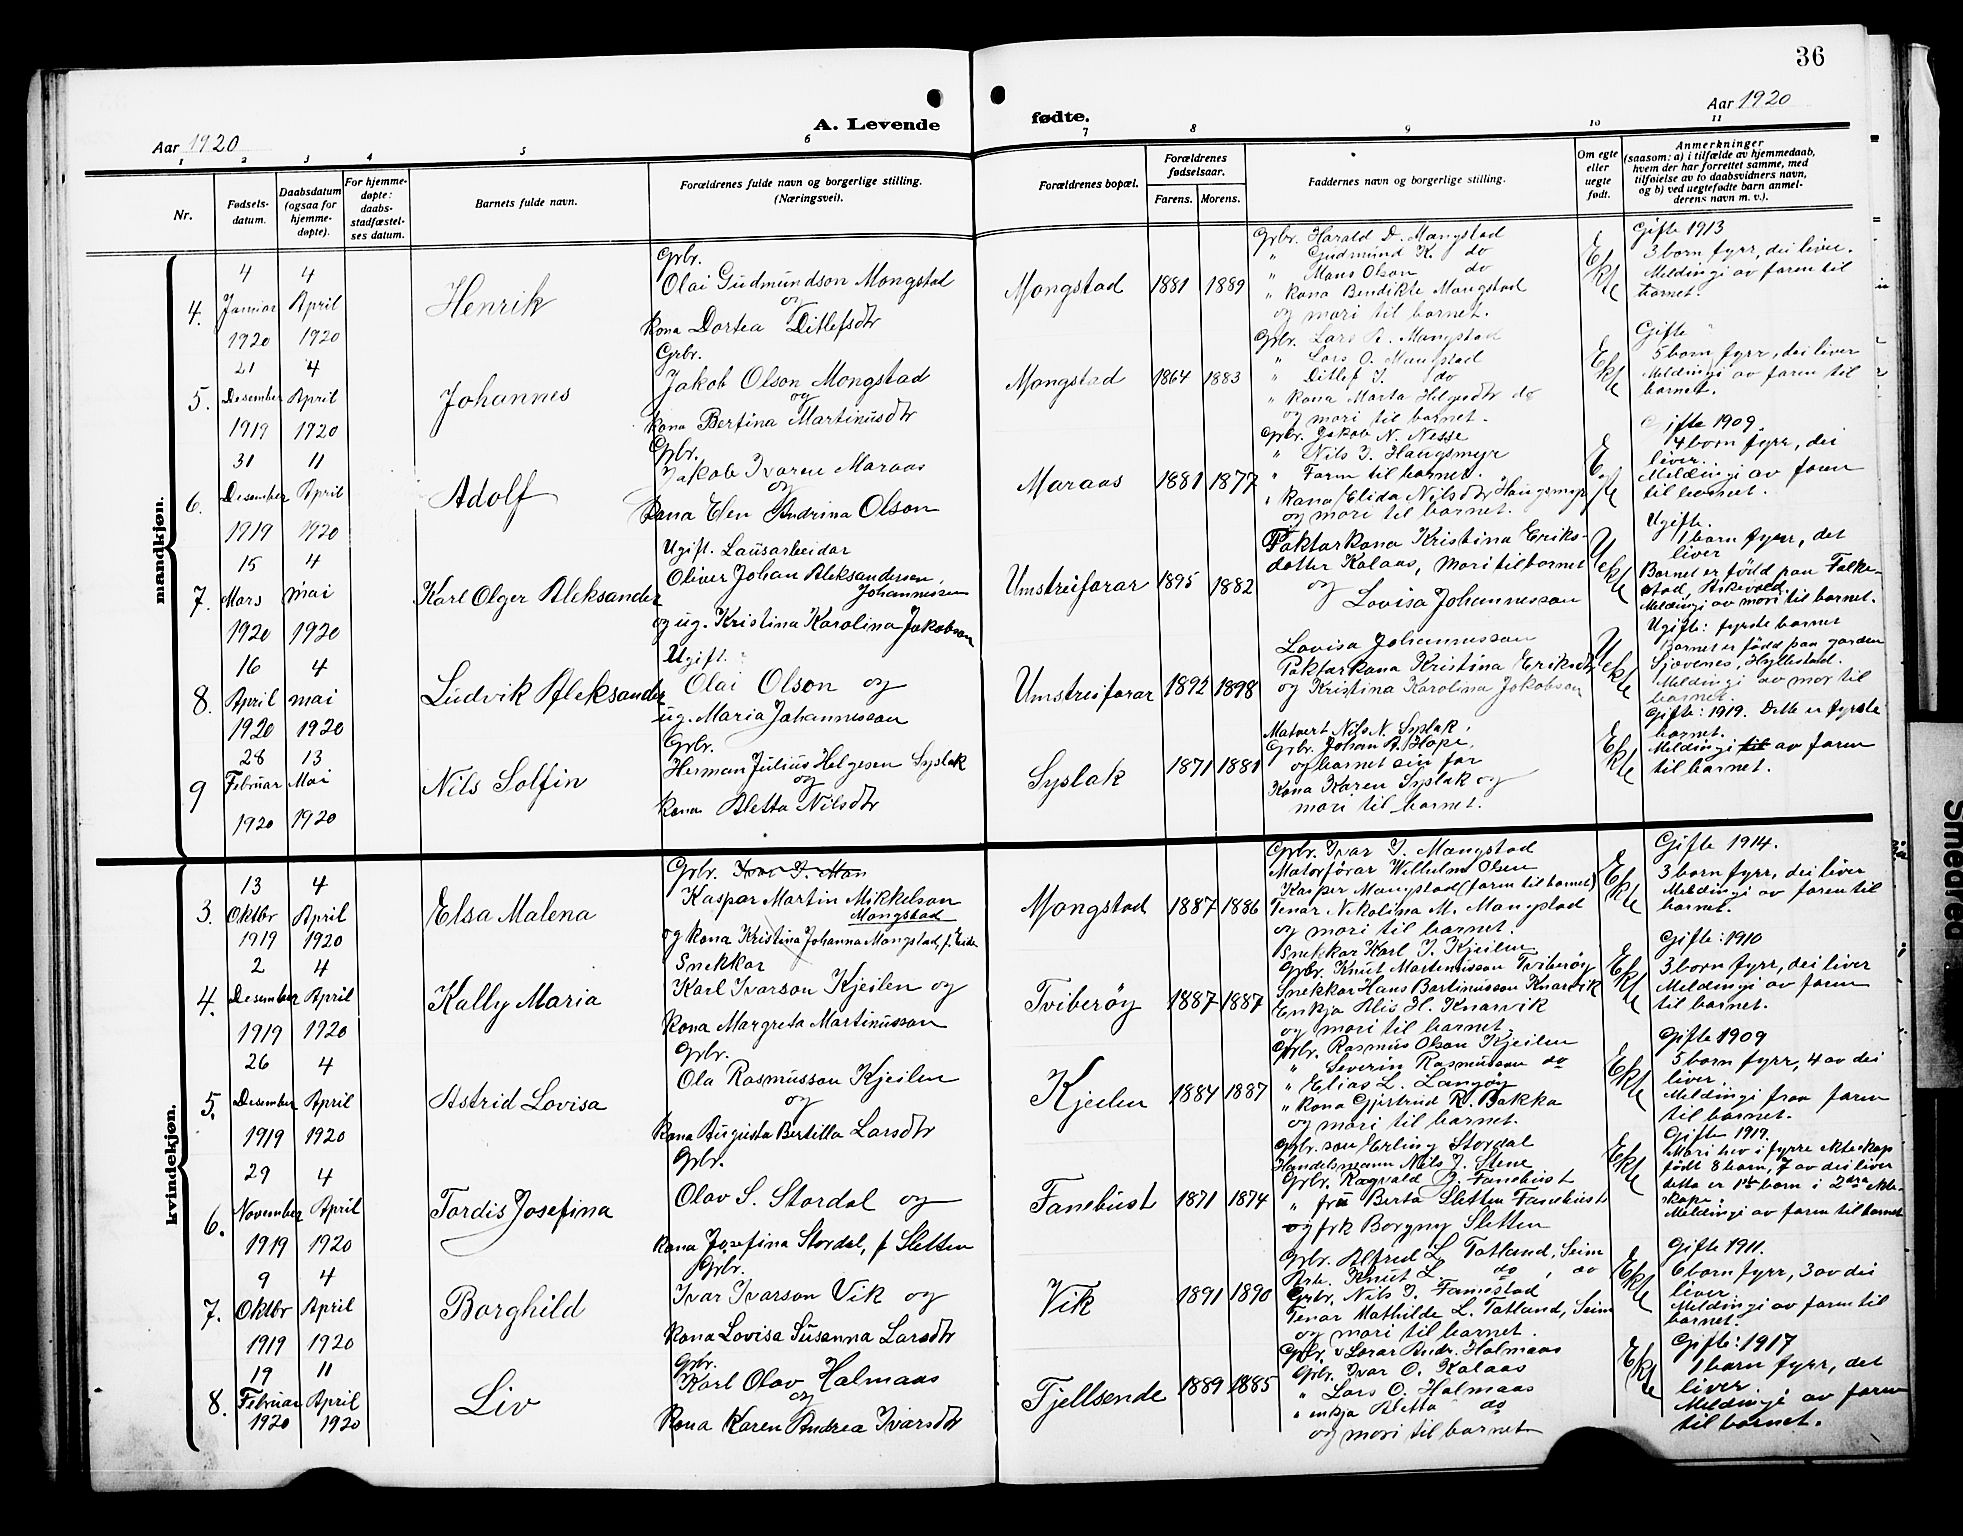 36
Aar 1920
A. Levende
fødte.
Aar 1920
1 2 3 4 5 6 7 8 9 10 11
Nr.
Fødsels-
datum.
Daabsdatum
(ogsaa for
hjemme-
døpte).
For hjemme-
døpte:
daabs-
stadfæstel-
ses datum.
Barnets fulde navn.
Forældrenes fulde navn og borgerlige stilling.
(Næringsvei).
Forældrenes bopæl.
Forældrenes
fødselsaar.
Farens. Morens.
Faddernes navn og borgerlige stilling.
Om egte
eller
uegte
født.
Anmerkninger
(saasom: a) i tilfælde av hjemmedaab,
hvem der har forrettet samme, med
tilføielse av to daabsvidners navn,
og b) ved uegtefødte barn anmel-
derens navn m. v.).
mandkjøn.
4.
4
Januar
1920
4
April
1920
Henrik
Grbr.
Olai Gudmundson Mongstad
og
kona Dortea Ditlefsdtr
Mongstad
1881 1889
Grbr. Harald D. Mongstad
" Gudmund K. do
" Mons Olson do
" kona Bendikte Mongstad
og mori til barnet.
Ekte
Gifte 1913
3 born fyrr, dei liver.
Meldingi av faren til
barnet.
5.
21
Desember
1919
4
April
1920
Johannes
Grbr.
Jakob Olson Mongstad
og
kona Bertina Martinusdtr
Mongstad
1864 1883
Grbr. Lars R. Mongstad
" Lars O. Mongstad
" Ditlef J. do
" kona Marta Helgesdtr do
og mori til barnet.
Ekte
Gifte "
5 born fyrr, dei liver
Meldingi av faren til
barnet.
6.
31
Desember
1919
11
April
1920
Adolf
Grbr.
Jakob Ivaren Maraas
og
Kona Elen Andrina Olson
Maraas
1881 1877
Grbr. Jakob N. Nesse
" Nils J. Haugsmyr
" Faren til barnet.
" kona Elida Nilsdtr Haugsmyr
og mori til barnet.
Ekte
Gifte 1909.
4 born fyrr, dei
liver.
Meldingi av faren
til barnet.
7.
15
Mars
1920
4
mai
1920
Karl Olger Aleksander
Ugift. Lausarbeidar
Oliver Johan Aleksandersen,
Johannessen
og ug. Kristina Karolina Jakobson
Umstreifarar
1895 1882
Faktarkona Kristina Eriks-
dotter Kolaas, Mori til barnet
og
Lovisa Johannesson
Uekte
Ugifte.
1 born fyrr, det
liver
Barnet er född paa Falke-
stad, Askevold.
Meldingi av mori til barnet.
8.
16
April
1920
4
mai
1920
Ludvik Aleksander
Ugift.
Olai Olson og
ug. Maria Johannesson
Umstreifarar
1892 1898
Lovisa Johannesson
Faktarkona Kristina Eriksdtr
og Kristina Karolina Jakobson
Uekte
Ugifte: fyrste barnet
Barnet er född paa garden
Sjovenes, Hyllestad.
Meldingi av mor til
barnet.
9
28
Februar
1920
13
Mai
1920
Nils Solfin
Grbr.
Herman Julius Helgesen Syslak
og
kona Aletta Nilsdtr
Syslak
1871 1881
Matvert Nils N. Syslak,
Grbr. Johan A. Hope,
og barnet sin far
Kona Karen Syslak og
mori til barnet.
Ekte
Gifte: 1919. Dette er fyrste
barnet.
Meldingi til av faren
til barnet.
kvindekjøn.
3.
13
Oktbr
1919
4
April
1920
Elsa Malena
Grbr. Ivar J. Mon
Kaspar Martin Mikkelson
Mongstad
og kona Kristina Johanna Mongstad, f. Eide
Mongstad
1887 1886
Grbr. Ivar J. Mongstad
Motorförar Wilhelm Olsen
Kasper Mongstad (faren til barnet)
Tenar Nikolina M. Mongstad
og mori til barnet.
Ekte
Gifte 1914.
3 born fyrr, dei liver
Meldingi av faren til
barnet.
4.
2
Desember
1919
4
April
1920
Kally Maria
Snekkar
Karl Ivarson Kjeilen og
Kona Margreta Martinusson
Tviberöy
1887 1887
Snekkar Karl J. Kjeilen
Grbr. Knut Martenusson Tviberöy
Snekkar Hans Bartinusson Knarvik
Enkja Alis H. Knarvik
og mori til barnet.
Ekte
Gifte: 1910
3 born fyrr, dei liver
Meldingi av faren
til barnet.
5.
26
Desember
1919
4
April
1920
Astrid Lovisa
Grbr.
Ola Rasmusson Kjeilen
og
Kona Augusta Bertilla Larsdtr
Kjeilen
1884 1887
Grbr. Rasmus Olson Kjeilen
" Severin Rasmusson do
" Elias L. Langöy
" kona Gjertrud R. Bakka
og mori til barnet.
Ekte
Gifte 1909
5 born fyrr, 4 av dei
liver.
Meldingi fraa faren
til barnet.
6.
29
November
1919
4
April
1920
Tordis Josefina
Grbr.
Olav S. Stordal og
kona Josefina Stordal, f Sletten
Fanebust
1871 1874
Grbr. son Erling Stordal
Handelsmann Nils J. Stene
Grbr. Ragvald J. Fanebust
" fru Berta Sletten Fanebust
og frk Borgny Sletten
Ekte
Gifte 1919.
Mori hev i fyrre ekteskap
födt 8 born, 7 av dei liver
dette er 1ste born i 2dra ekte-
skape.
Meldingi av faren til barnet
7.
9
Oktbr
1919
4
April
1920
Borghild
Grbr.
Ivar Ivarson Vik og
kona Lovisa Susanna Larsdtr
Vik
1891 1890
Grbr. Alfred L. Totland, Seim
Arb. Knut L. do, do
Grbr. Nils J. Famestad
Tenar Mathilde L. Totland, Seim
og mori til barnet.
Ekte
Gifte 1911.
6 born fyrr, 3 av dei
liver.
Meldingi av faren til
barnet.
8.
19
Februar
1920
11
April
1920
Liv
Grbr.
Karl Olav Halmaas
og
Kona Karen Andrea Ivarsdtr
Fjellsende
1889 1885
Grbr. v Lorar Andr. Halmaas
Grbr. Ivar O. Kolaas
" Lars O. Halmaas
" enkja Aletta do
og mori til barnet
Ekte
Gifte: 1917
1 born fyrr, det
liver.
Meldingi av faren
til barnet.